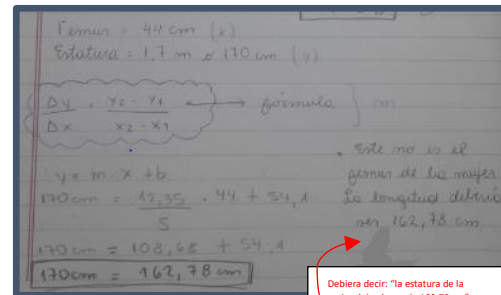 Femur = 44 cm (x)
Estatura = 1,7 m o 170 cm (y)
Δy = y2 - y1 → fórmula } m
Δx x2 - x1
y = m · x + b
170 cm = 12,35 · 44 + 54,1
5
170 cm = 108,68 + 54,1
170 cm = 162,78 cm
• Este no es el
femur de la mujer
La longitud debería
ser 162,78 cm
Debiera decir: "la estatura de la